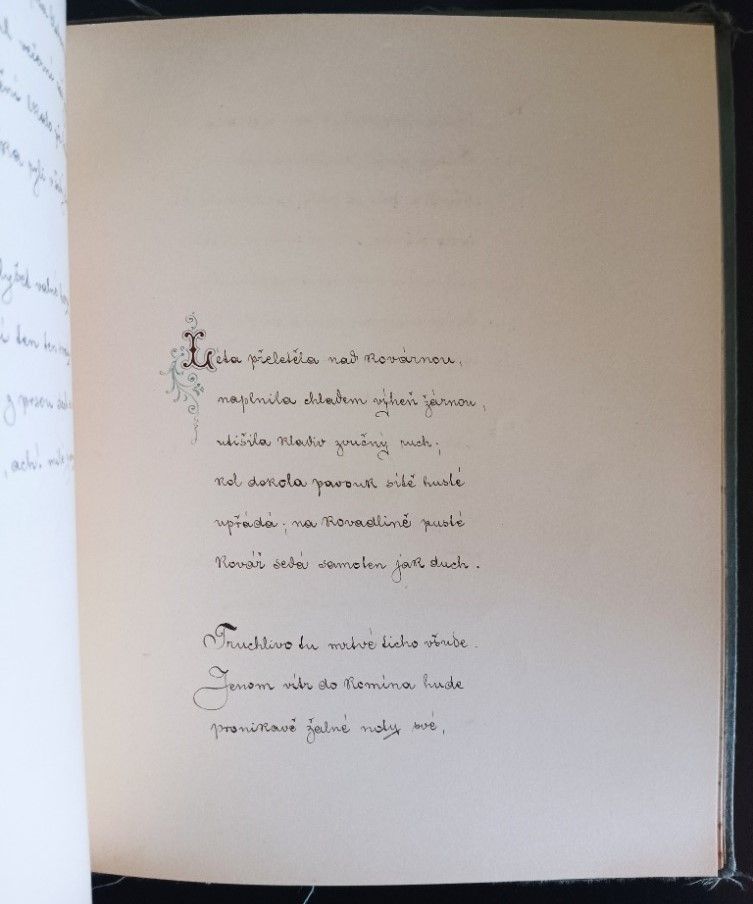 Léta přeletěla nad kovárnou,
naplnila chladem výheň žárnou,
utišila kladiv zvučný ruch;
kol dokola pavouk sítě husté
upřádá; na kovadlině pusté
kovář sedá samoten jak duch.
Truchlivo tu mrtvé ticho všude.
Jenom vítr do komína hude
pronikavě žalné noty své,